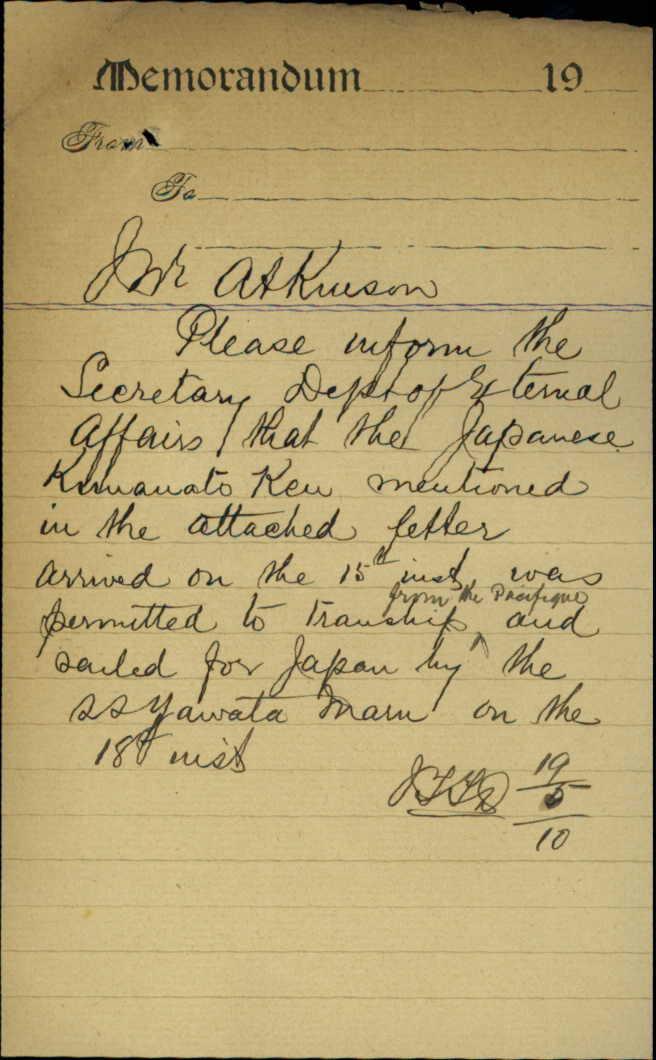 Memorandum 19
From
To
Mr Atkinson
Please inform the
Secretary Dept of External
Affairs that the Japanese
Kumanato Ken mentioned
in the attached letter
arrived on the 15th inst, was
from the Pacifique
permitted to tranship ^ and
sailed for Japan by the
SS Yawata Maru on the
18th inst
19
5
10